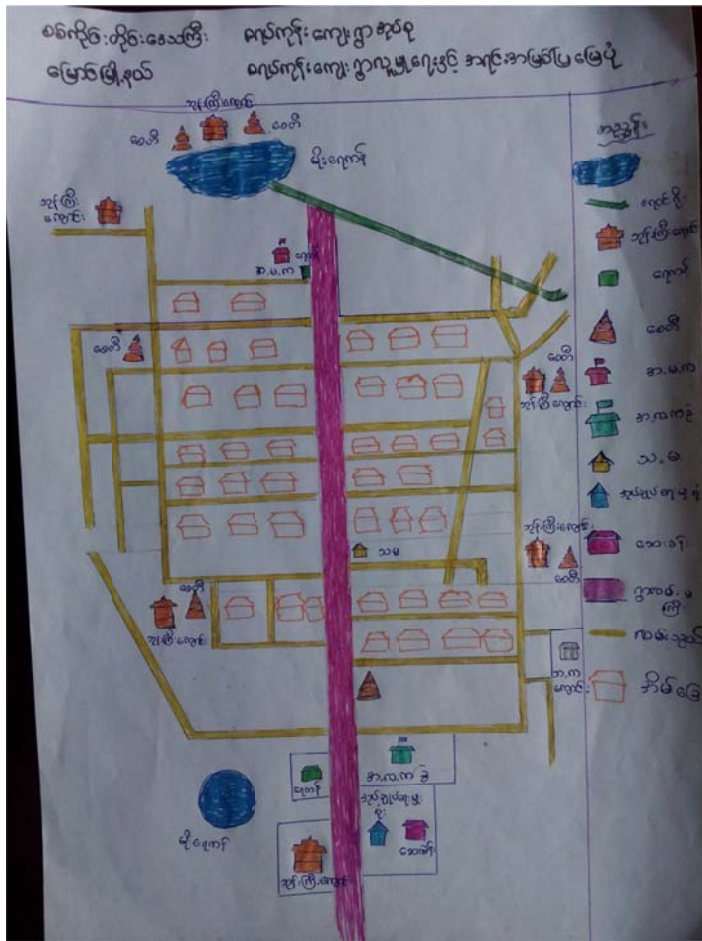 စစ်ကိုင်းတိုင်းဒေသကြီး ဓရပ်ကုန်းကျေးရွာအုပ်စု
မြောင်မြို့နယ် ဓရပ်ကုန်းကျေးရွာလူမှုရေးနှင့် အရင်းအမြစ်ပြ မြေပုံ
ဘုန်းကြီးကျောင်း
စေတီ
စေတီ
မိုးရေကန်
ဘုန်းကြီး
ကျောင်း
ရေကန်
အ.မ.က
စေတီ
စေတီ
ဘုန်းကြီးကျောင်း
သ.မ
ဘုန်းကြီးကျောင်း
စေတီ
စေတီ
ဘုန်းကြီးကျောင်း
အ.က
ကျောင်း
ရေကန်
အ.လ.က ခွဲ
အုပ်ချုပ်ရေးမှူး
ရုံး
ဆေးခန်း
မိုးရေကန်
ဘုန်းကြီးကျောင်း
ရေကန်
ဘုန်းကြီးကျောင်း
ရေကန်
စေတီ
အ.မ.က
အ.လ.က ခွဲ
သ.မ
ဆေးခန်း
ရွာလမ်းမ
ကြီး
အိမ်ခြေ